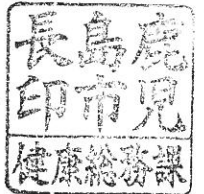 鹿児
島市
長印
健康総務課